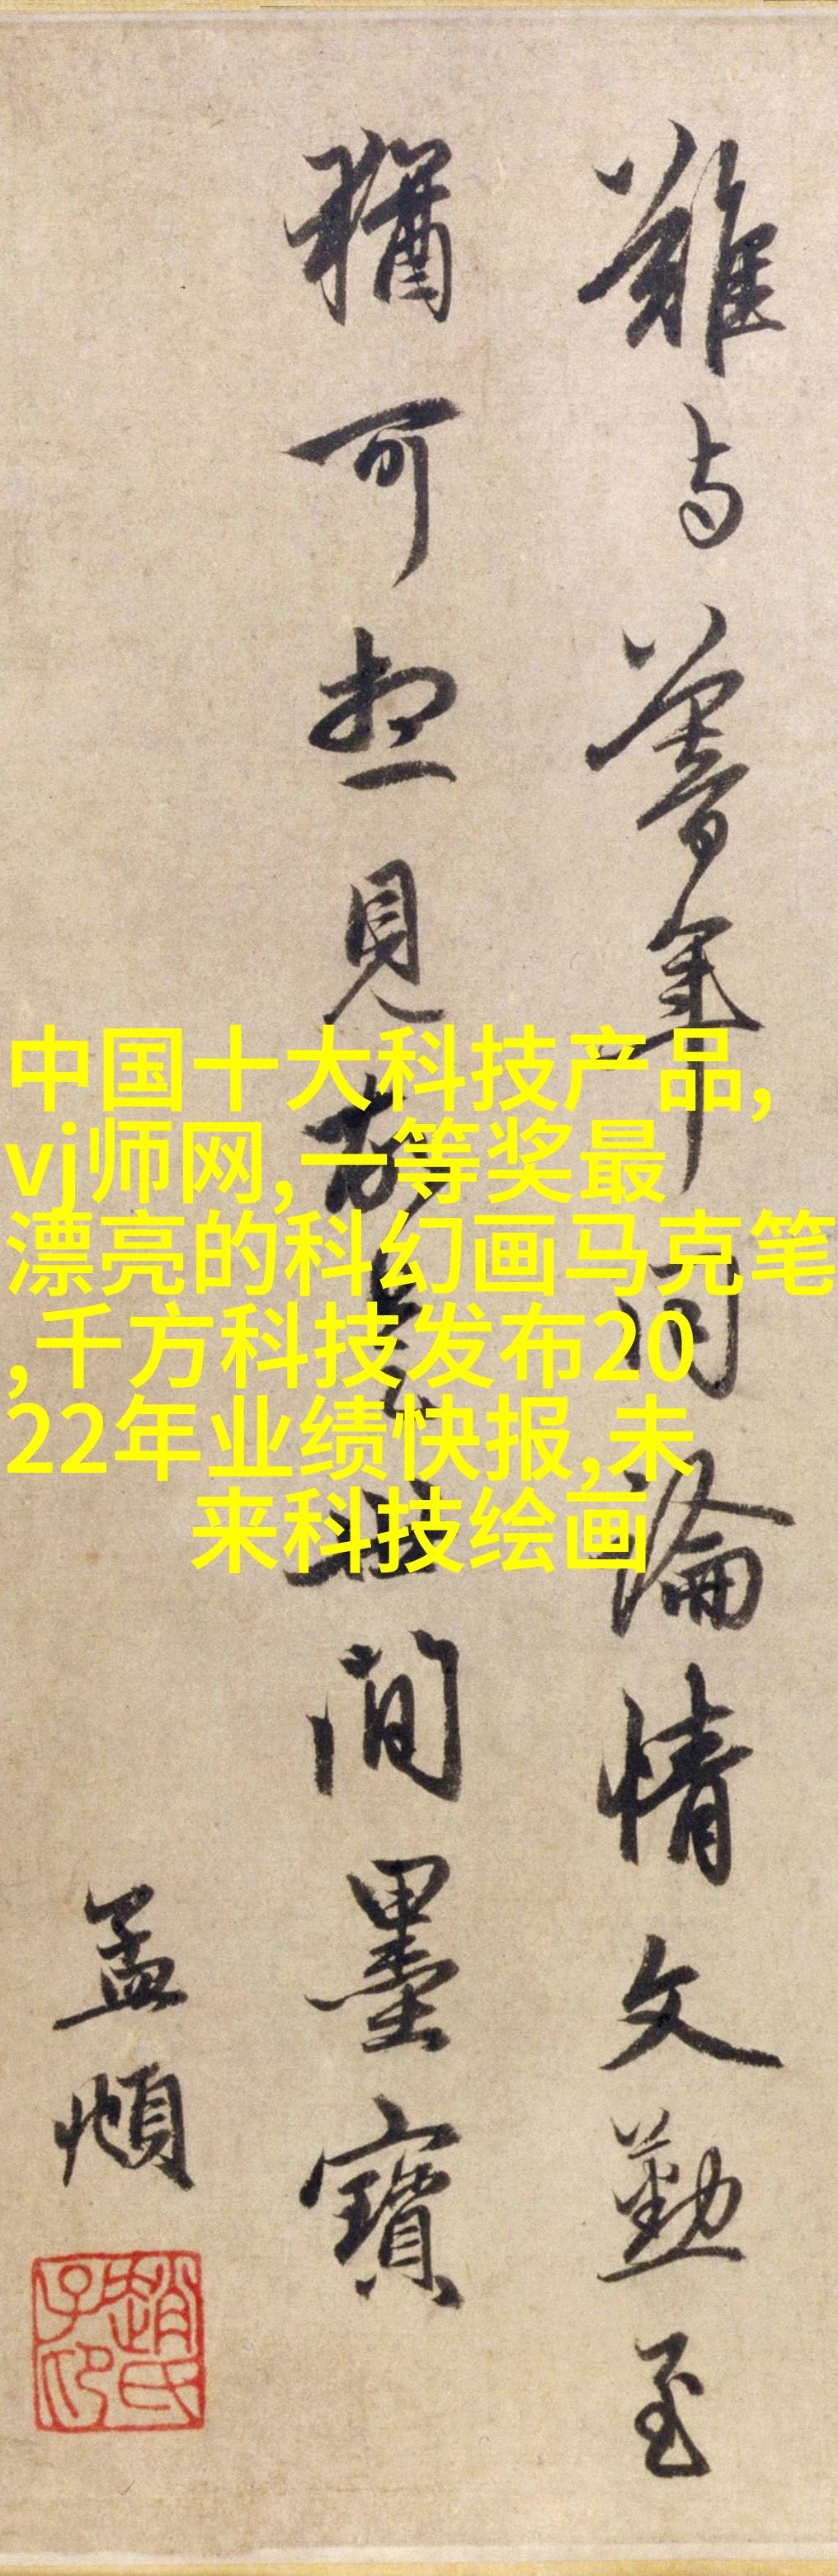 難与暮年同論情文勤至
猶可想見故是世間墨寶
孟頫
趙氏子昂
中国十大科技产品,
vj师网,一等奖最
漂亮的科幻画马克笔
,千方科技发布20
22年业绩快报,未
来科技绘画